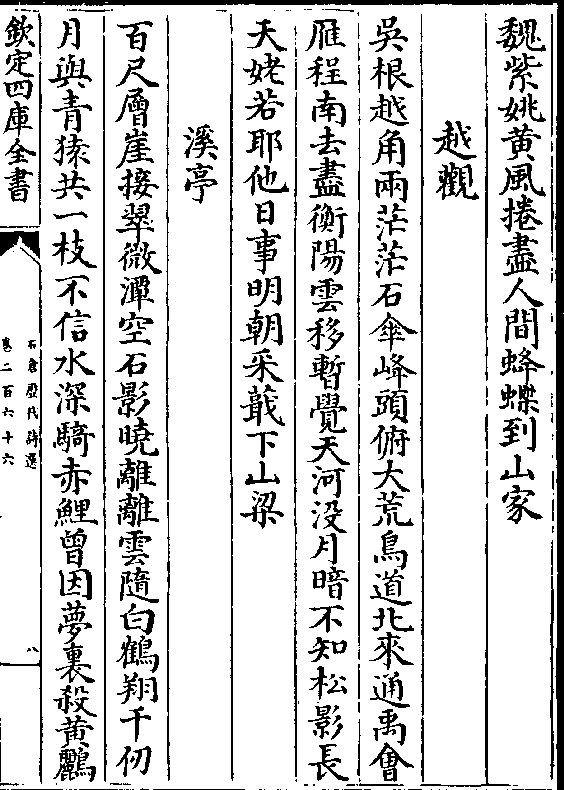 魏紫姚黄風捲盡人間蜂蝶到山家
越觀
吳根越角兩茫茫石傘峰頭俯大荒鳥道北來通禹會
雁程南去盡衡陽雲移暫覺天河没月暗不知松影長
天姥若耶他日事明朝采蕺下山梁
溪亭
百尺層崖接翠微潭空石影曉離離雲隨白鶴翔千仞
月與青猿共一枝不信水深騎赤鯉曾因夢裏殺黄鸝
欽定四庫全書
石倉歷代詩選
卷二百六十六
八